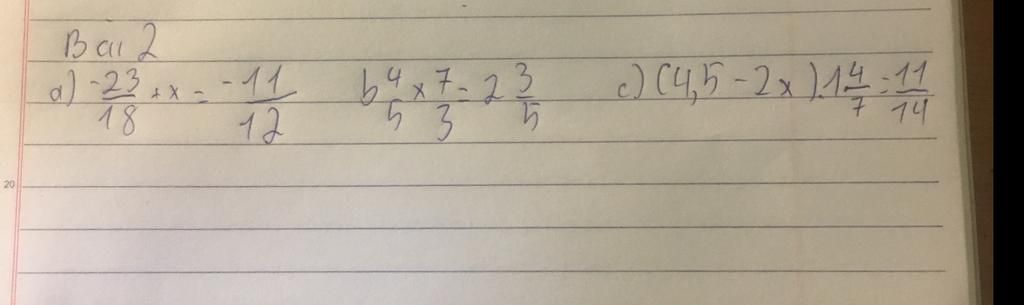 Bài 2
a) -23/18 + x = -11/12 b 4/5 x 7/3 = 2 3/5 c) (4,5 - 2x).1 4/7 = 11/14
20